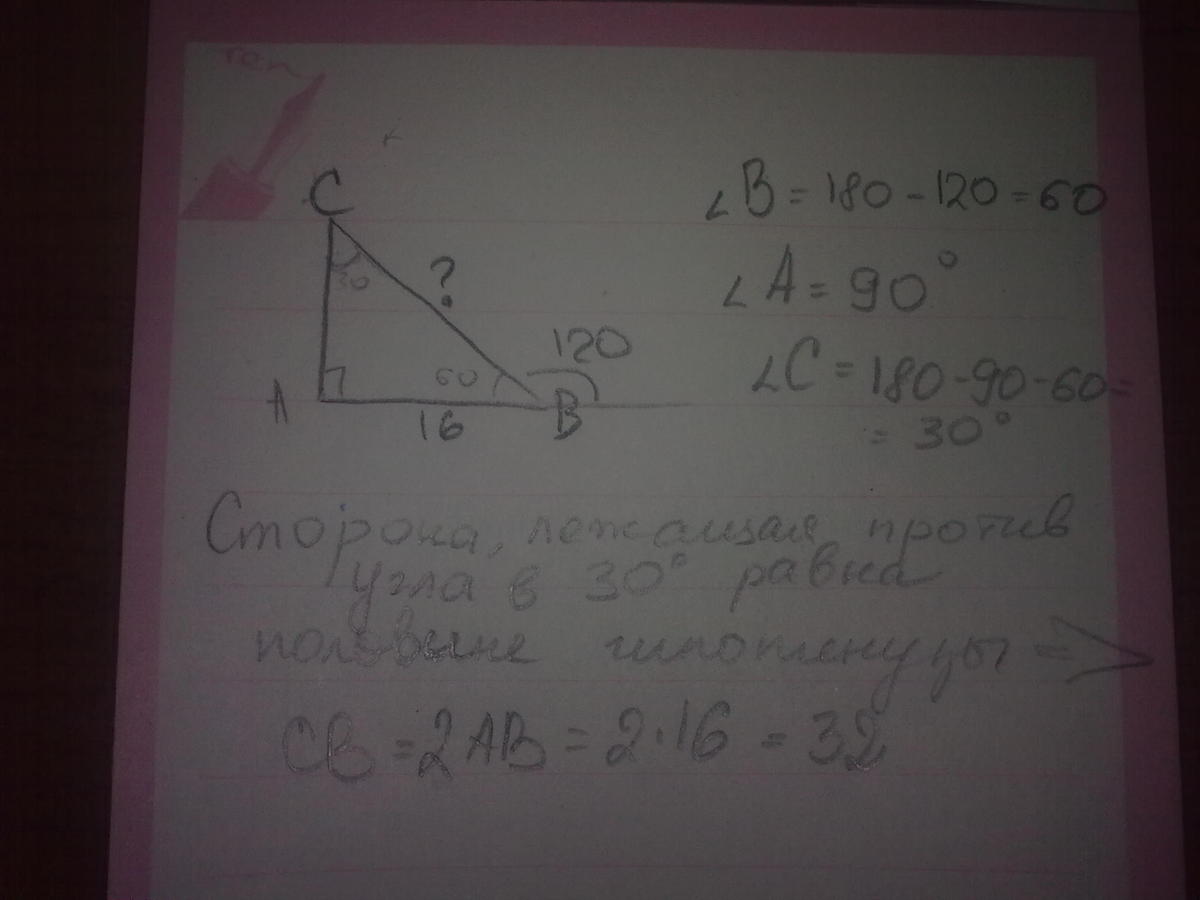 C
30
?
120
60
A
16
B
∠B = 180 - 120 = 60
∠A = 90°
∠C = 180 - 90 - 60 =
= 30°
Сторона, лежащая против
угла в 30° равна
половине гипотенузы =>
CB = 2AB = 2·16 = 32